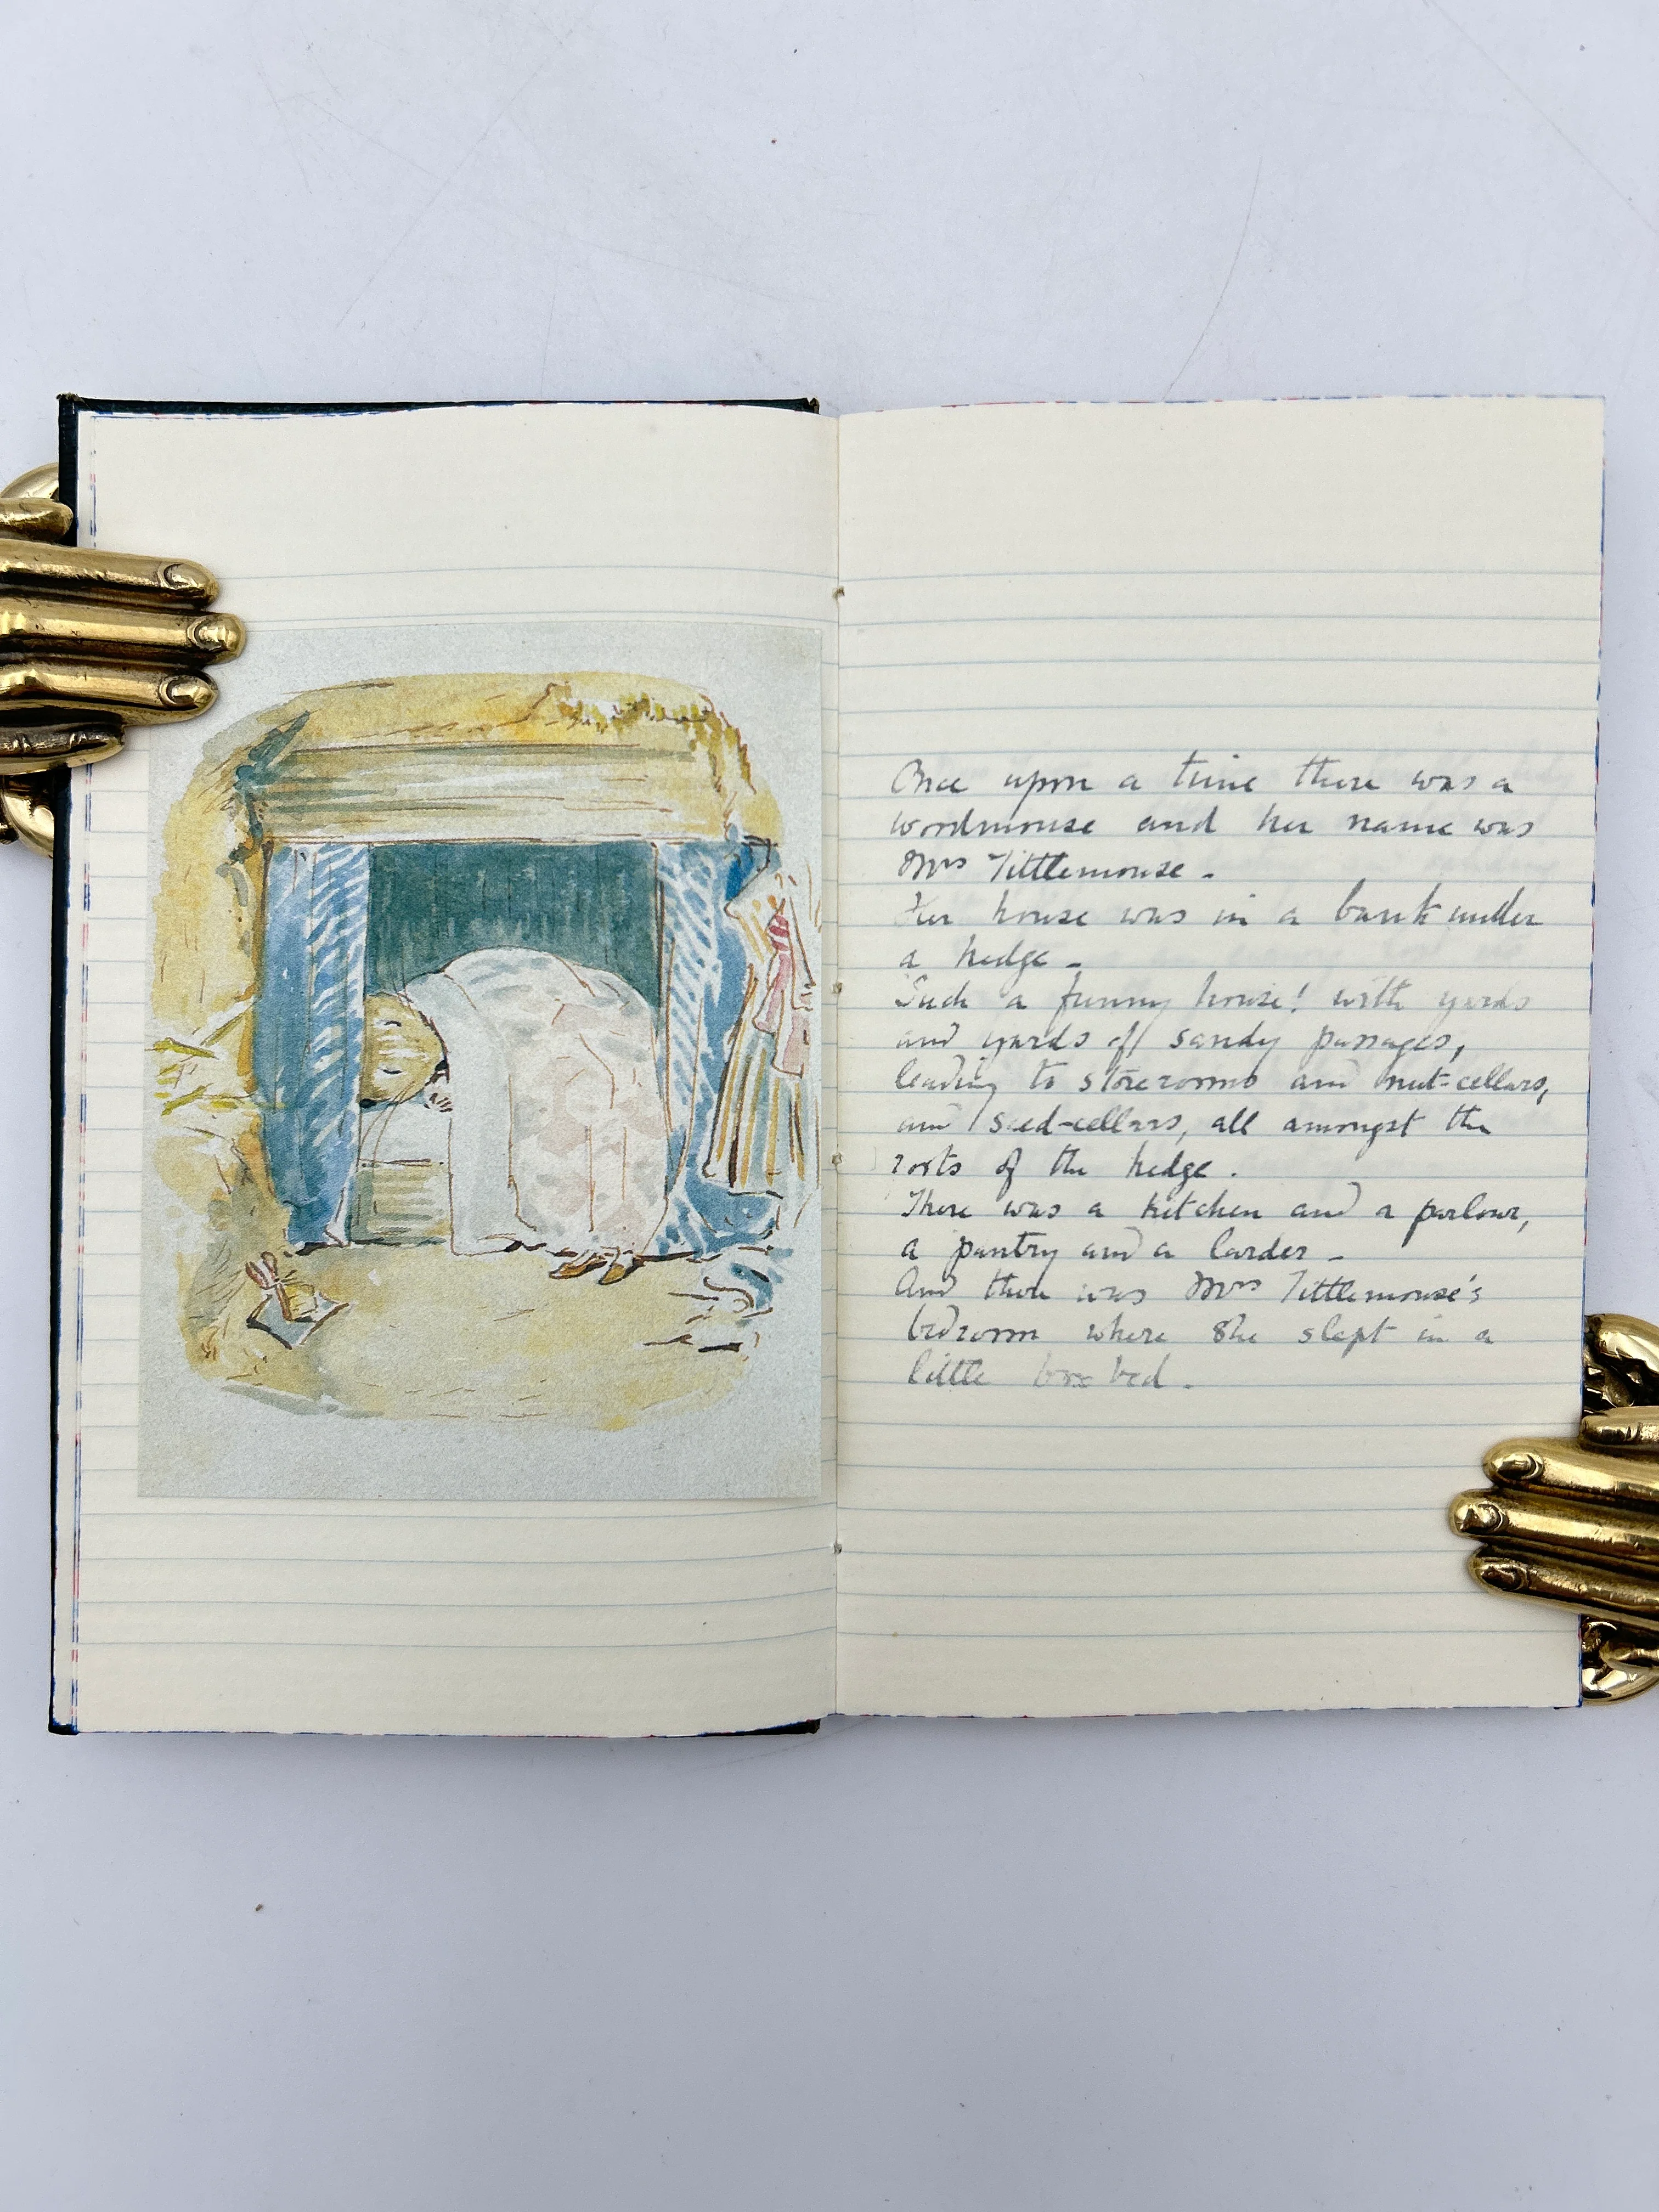 Once upon a time there was a
woodmouse and her name was
Mrs Tittlemouse -
Her house was in a bank under
a hedge -
Such a funny house! with yards
and yards of sandy passages,
leading to storerooms and nut-cellars,
and seed-cellars, all amongst the
roots of the hedge.
There was a kitchen and a parlour,
a pantry and a larder -
And there was Mrs Tittlemouse's
bedroom where she slept in a
little box bed -